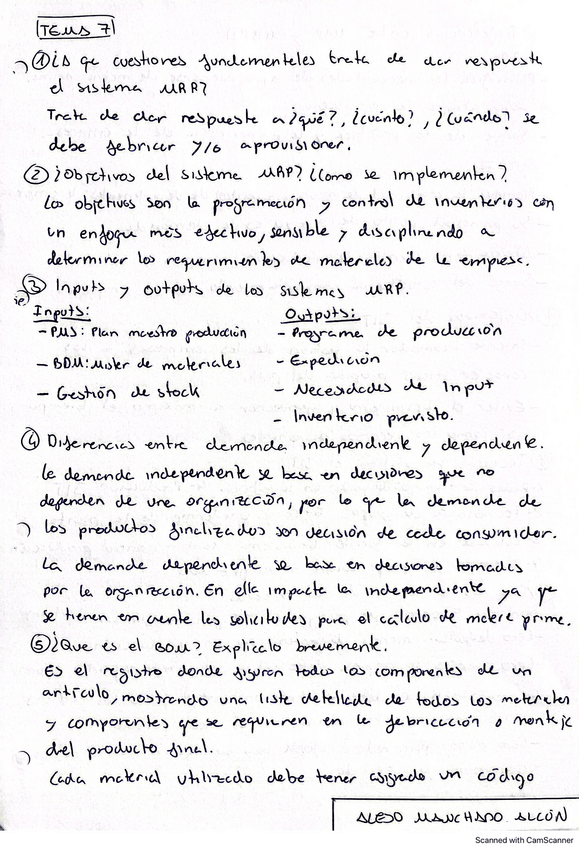 TEMA 7
①¿A qe cuestiones fundamentales trata de dar respuesta
el sistema MRP?
Trata de dar respuesta a ¿qué?, ¿cuánto?, ¿cuándo? se
debe fabricar y/o aprovisioner.
② ¿Objetivos del sistema MRP? ¿Como se implementen?
Los objetivos son la programación y control de inventarios con
un enfoque más efectivo, sensible y disciplinando a
determinar los requerimientos de materiales de la empresa.
③ Inputs y outputs de los sistemas MRP.
Inputs:
- PMS: Plan maestro producción
- BOM: Master de materiales
- Gestión de stock
Outputs:
- Programa de producción
- Expedición
- Necesidades de Input
- Inventario previsto.
④ Diferencias entre demanda independiente y dependiente.
La demanda independiente se basa en decisiones que no
dependen de una organización, por lo qe la demanda de
los productos finalizados son decisión de cada consumidor.
La demanda dependiente se basa en decisiones tomadas
por la organización. En ella impacta la independiente ya qe
se tienen en cuenta las solicitudes para el cálculo de materia prime.
⑤ ¿Que es el BOM? Explícalo brevemente.
Es el registro donde figuran todos los componentes de un
artículo, mostrando una lista detallada de todos los materiales
y componentes qe se requieren en la fabricación o montaje
del producto final.
Cada material utilizado debe tener asigrado un código
ALEJO MANCHADO ALCÓN
Scanned with CamScanner